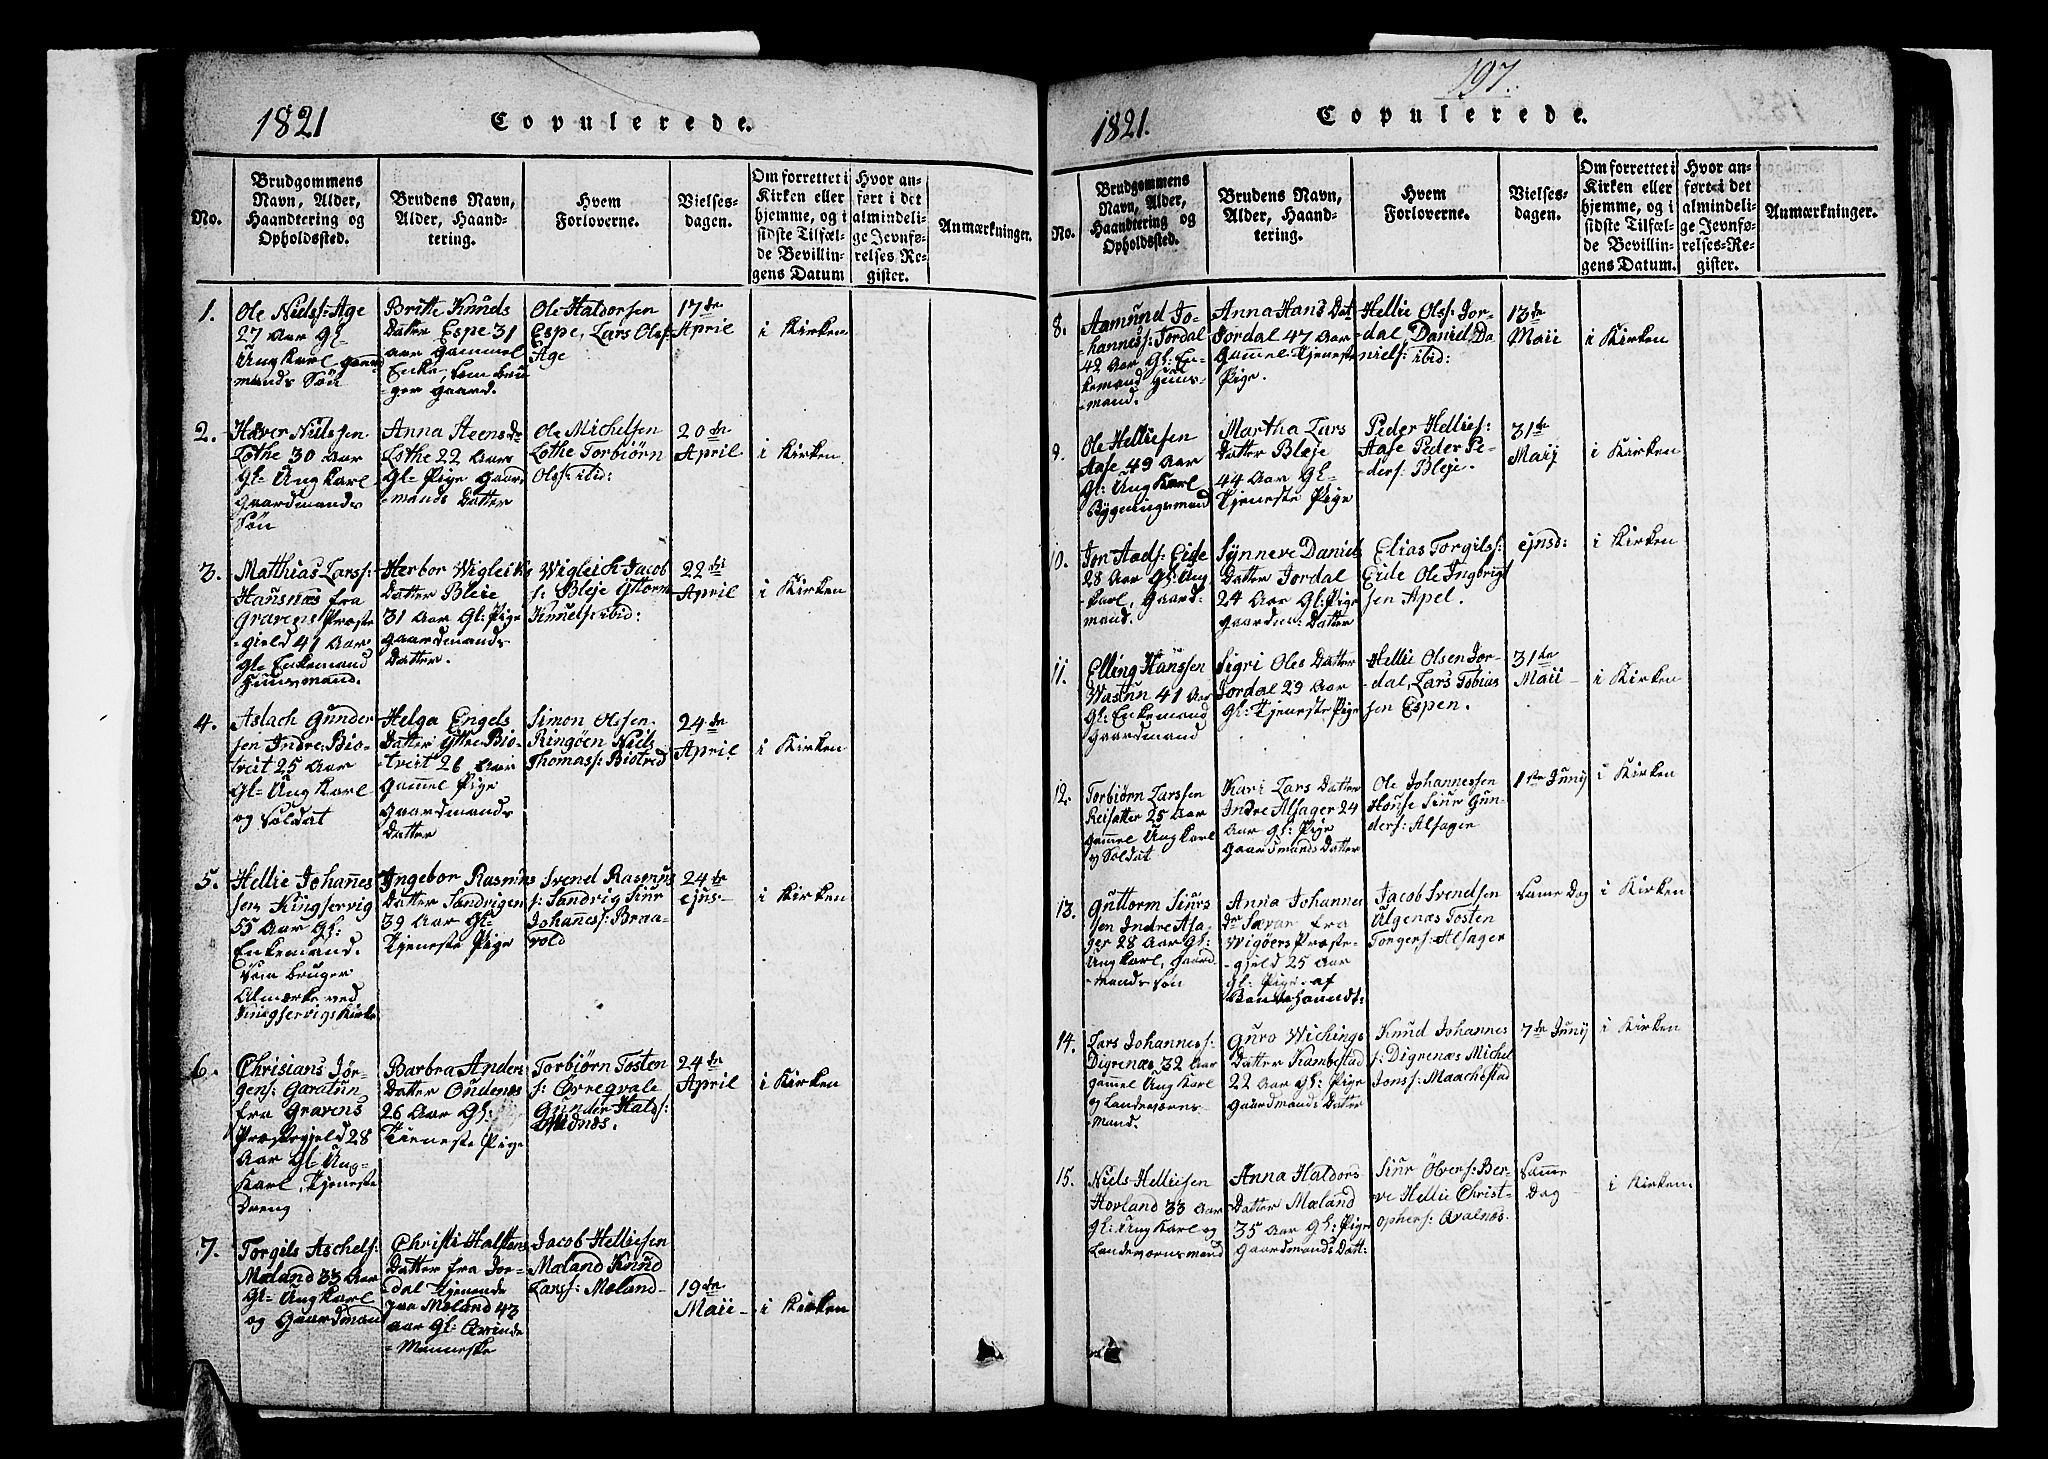 1821
Copulerede.
No.
Brudgommens
Navn, Alder,
Haandtering og
Opholdssted.
Brudens Navn,
Alder, Haand-
tering.
Hvem
Forloverne.
Vielses-
dagen.
Om forrettet i
Kirken eller
hjemme, og i
sidste Tilfæl-
de Bevillin-
gens Datum
Hvor an-
ført i det
almindeli-
ge Jevnfø-
relses-Re-
gister.
Anmærkninger.
1.
Ole Niels: Age
27 Aar Gl-
Ung Karl gaard
mands Søn
Britte Knuds
Datter Espe 31
aar Gammel
Enke, som bru
ger gaard.
Ole Haldorsen
Espe, Lars Ols:
Age
17de
April
i Kirken
2.
Haver Nielssen
Lothe 30 Aar
Gl- Ung Karl
gaardmands
Søn
Anna Steensdr
Lothe 22 Aar
Gl- Pige Gaard
-mands Datter
Ole Michelsen
Lothe Torbiørn
Olss: ibid:
20de
April
i Kirken
3.
Matthias Larss:
Hausnæs fra
Gravens Præste
-gield 41 Aar
Gl- Enkemand
Huusmand.
Herbor Wigleiks
Datter Bleie
31 Aar Gl: Pige
gaardmands
Datter.
Wigleich Jacob
s: Bleje Guttorm
Knuels: ibid:
22de
April
i Kirken
4.
Aslach Gunder
sen Indre Bio-
tveit 25 Aar
Gl- Ung Karl
og Soldat
Helga Engels
Datter Ytre Bio-
tveit 26 Aar
Gammel Pige
Gaardmands
Datter
Simon Olssen
Ringøen Niels
Thomass: Biotved
24de
April
i Kirken
5.
Hellie Johannes
sen Kingservig
55 Aar Gl:
Enkemand.
som bruger
Almærke ved
Kingservigs Kirke
Ingebor Rasmus
Datter Sandvigen
39 Aar Gl-
Tjeneste Pige
Svend Rasmus
s: Sandvig Siur
Johannes: Braa-
vold
24de
ejus-
i Kirken
6.
Chrisians Jør-
gens: Garatun
fra Gravens
Præstegjeld 28
Aar Gl- Ung-
Karl, Tjeneste
Dreng
Barbra Anders
Datter Oudenæs
26 Aar Gl:
Tjeneste Pige
Torbiørn Tosten
s: Orregvale
Gunder Halds:
24de
April
i Kirken
7.
Torgils Aschels:
Mæland 33 Aar
Gl- Ung Karl
og Gaardmand
Christi Halstens
Datter fra Jor-
dal Tjenende
paa Mæland 43
aar Gl: Qvinde
-Menneske
Jacob Helliesen
Mæland Knud
Larss: Mæland-
19de
Maii-
i Kirken
197.
1821.
Copulerede.
No.
Brudgommens
Navn, Alder,
Haandtering og
Opholdssted.
Brudens Navn,
Alder, Haand-
tering.
Hvem
Forloverne.
Vielses-
dagen.
Om forrettet i
Kirken eller
hjemme, og i
sidste Tilfæl-
de Bevillin-
gens Datum.
Hvor an-
ført i det
almindeli-
ge Jevnfø-
relses-Re-
gister.
Anmærkninger.
8.
Aamund Jo-
-hanness: Jordal
42 Aar Gl: En-
kemand Huus-
-mand.
Anna Hans Dat
Jordal 47 Aar
Gammel Tjeneste
Pige.
Hellie Olss: Jor-
-dal, Daniel Da
niels: ibid:
13de
Maii
i Kirken
9.
Ole Helliesen
Aase 49 Aar
Gl: Ung Karl
Bygningsmand
Martha Lars
Datter Bleje
44 Aar Gl-
Tjeneste Pige
Peder Hellies:
Aase Peder Pe-
ders: Bleje.
31te
Maij
i Kirken
10.
Jon Aads: Eide
28 Aar Gl: Ung
karl, Gaard-
mand.
Synneve Daniels
Datter Jordal
24 Aar Gl: Pige
Gaardm: Datter
Elias Torgilss:
Eide Ole Ingbrigt
sen Apel.
ejusd:
i Kirken
11.
Elling Hanssen
Wasun 41 Aar
Gl: Enkemand
Gaardmand
Sigri Oles Datter
Jordal 29 Aar
Gl: Tjeneste Pige
Hellie Olsen Jor-
-dal, Lars Tobias
sen Espen.
31te
Maii-
i Kirken
12.
Torbiørn Larssen
Reisæter 25 Aar
Gammel Ung Karl
og Soldat
Kari Lars Datter
Indre Alsager 24
Aar Gl: Pige
Gaardmands Datter
Ole Johannessen
House Siur Gun-
ders: Alsager
1ste Junij
i Kirken
13.
Guttorm Siurs
sen Indre Alsa-
ger 28 Aar Gl:
Ung Karl, Gaard
-mands Søn
Anna Johannes
Dr Sævar fra
Wigøers Præste-
-gjeld 25 Aar
Gl: Pige. af
Bondestand:
Jacob Svendsen
Ulgenæs Tosten
Torgers: Alsager
Same Dag
i Kirken
14.
Lars Johanness:
Digrenæs 32 Aar
gammel Ung Karl
og Landeværns-
-Mand.
Guro Wichings
Datter Kambestad
22 Aar Gl: Pige
Gaardmands Datter
Knud Johannes
s: Digrenæs Michel
Jonss: Maachestad
7de Junij
i Kirken
15.
Niels Helliesen
Hovland 33 Aar
Gl: Ung Karl og
Landeværnsmand
Anna Haldors
Datter Mæland
35 Aar Gl: Pige
Gaardmands Datt:
Siur Ølvers: Ber-
ve Hellie Christ-
ophers: Avalnæs.
Samme
Dag
i Kirken.